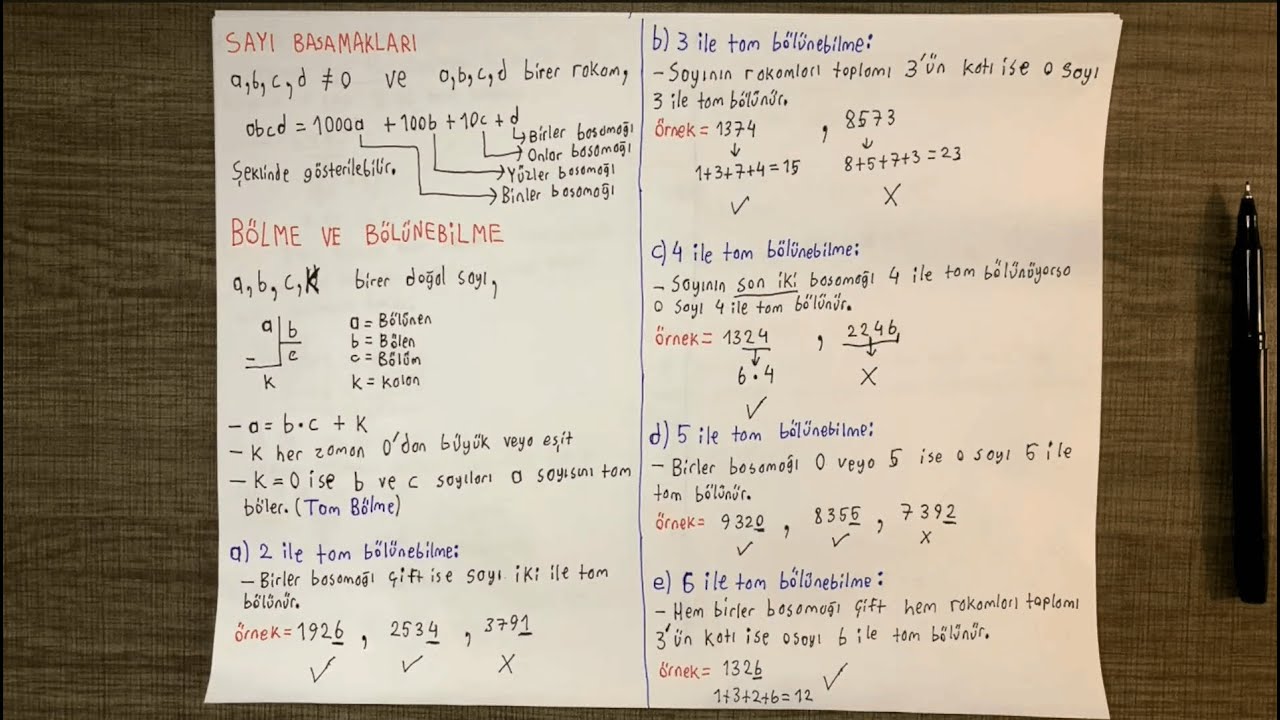 SAYI BASAMAKLARI
a,b,c,d ≠ 0 ve a,b,c,d birer rakam,
abcd = 1000a + 100b + 10c + d
Birler basamağı
Onlar basamağı
Yüzler basamağı
Binler basamağı
Şeklinde gösterilebilir.
BÖLME VE BÖLÜNEBİLME
a,b,c,K birer doğal sayı,
a b
c
K
a = Bölünen
b = Bölen
c = Bölüm
k = Kalan
- a = b·c + K
- K her zaman 0'dan büyük veya eşit
- K = 0 ise b ve c sayıları a sayısını tam
böler. (Tam Bölme)
a) 2 ile tam bölünebilme:
- Birler basamağı çift ise sayı iki ile tam
bölünür.
örnek = 1926, 2534, 3791
✓ ✓ X
b) 3 ile tam bölünebilme:
- Sayının rakamları toplamı 3'ün katı ise o sayı
3 ile tam bölünür.
örnek = 1374, 8573
1+3+7+4=15 8+5+7+3=23
✓ X
c) 4 ile tam bölünebilme:
- Sayının son iki basamağı 4 ile tam bölünüyorsa
o sayı 4 ile tam bölünür.
örnek = 1324, 2246
6·4 X
✓
d) 5 ile tam bölünebilme:
- Birler basamağı 0 veya 5 ise o sayı 5 ile
tam bölünür.
örnek = 9320, 8355, 7392
✓ ✓ X
e) 6 ile tam bölünebilme:
- Hem birler basmağı çift hem rakamları toplamı
3'ün katı ise o sayı 6 ile tam bölünür.
örnek = 1326 ✓
1+3+2+6=12